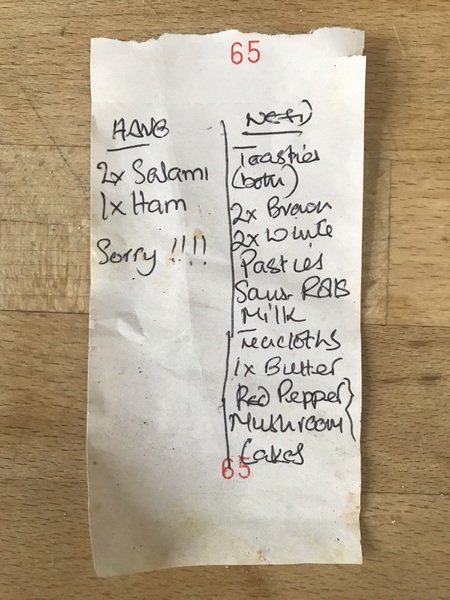 65
HAVE
2x Salami
1x Ham
Sorry !!!!
NEED
Toasties
(both)
2x Brown
2x White
Pasties
Saus Rolls
Milk
Teacloths
1x Butter
Red Pepper }
Mushroom
Cakes
65